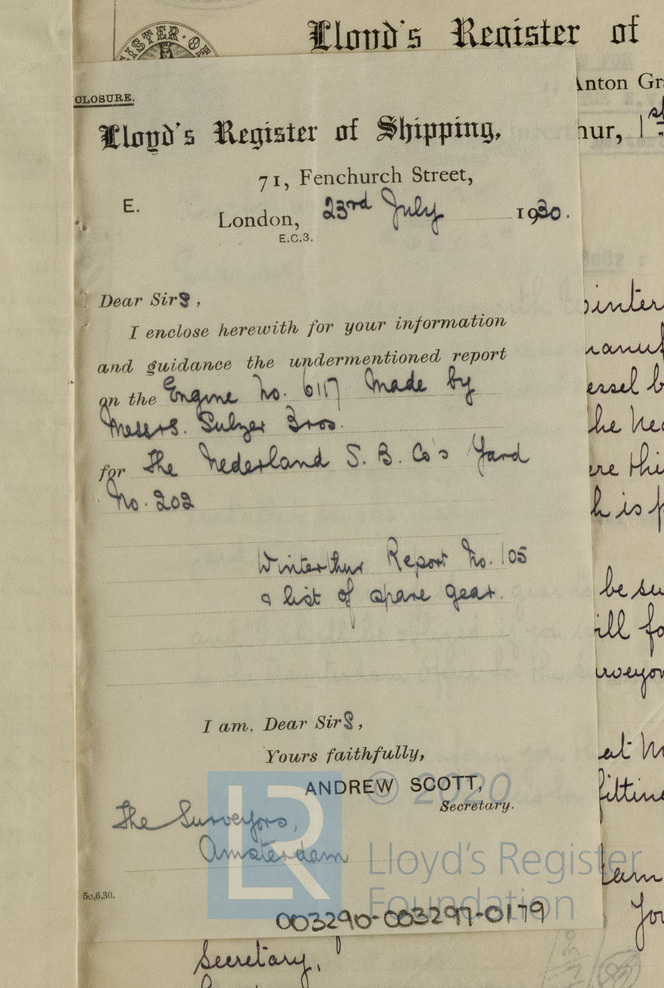 Lloyd's Register of
Anton Gr
hur, 1st
CLOSURE.
Lloyd's Register of Shipping,
71, Fenchurch Street,
E.
London, 23rd July 1930.
E.C.3.
Dear Sirs,
I enclose herewith for your information
and guidance the undermentioned report
on the Engine No. 6117 made by
Messrs. Sulzer Bros.
for The Nederland S. B. Co's Yard
No. 202
Winterthur Report No. 105
& list of spare gear.
I am, Dear Sirs,
Yours faithfully,
ANDREW SCOTT,
Secretary.
The Surveyors,
Amsterdam
5c,6,30.
LR
© 2020
Lloyd's Register
Foundation
003290-003297-0179
Secretary,
inter
manuf
essel b
he Ne
ere thi
h is p
be su
ill fo
rveyor
at
fittin
Yo